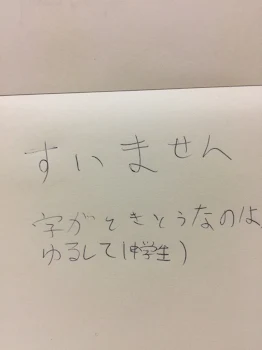 すいません
字がてきとうなのは
ゆるして(中学生)